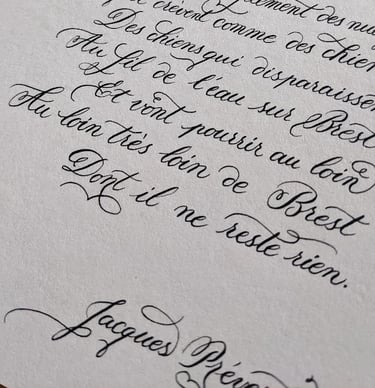 des nua
crèvent comme des chien
Des chiens qui disparaissen
Au fil de l'eau sur Brest
Et vont pourrir au loin
Au loin très loin de Brest
Dont il ne reste rien.
Jacques Préve